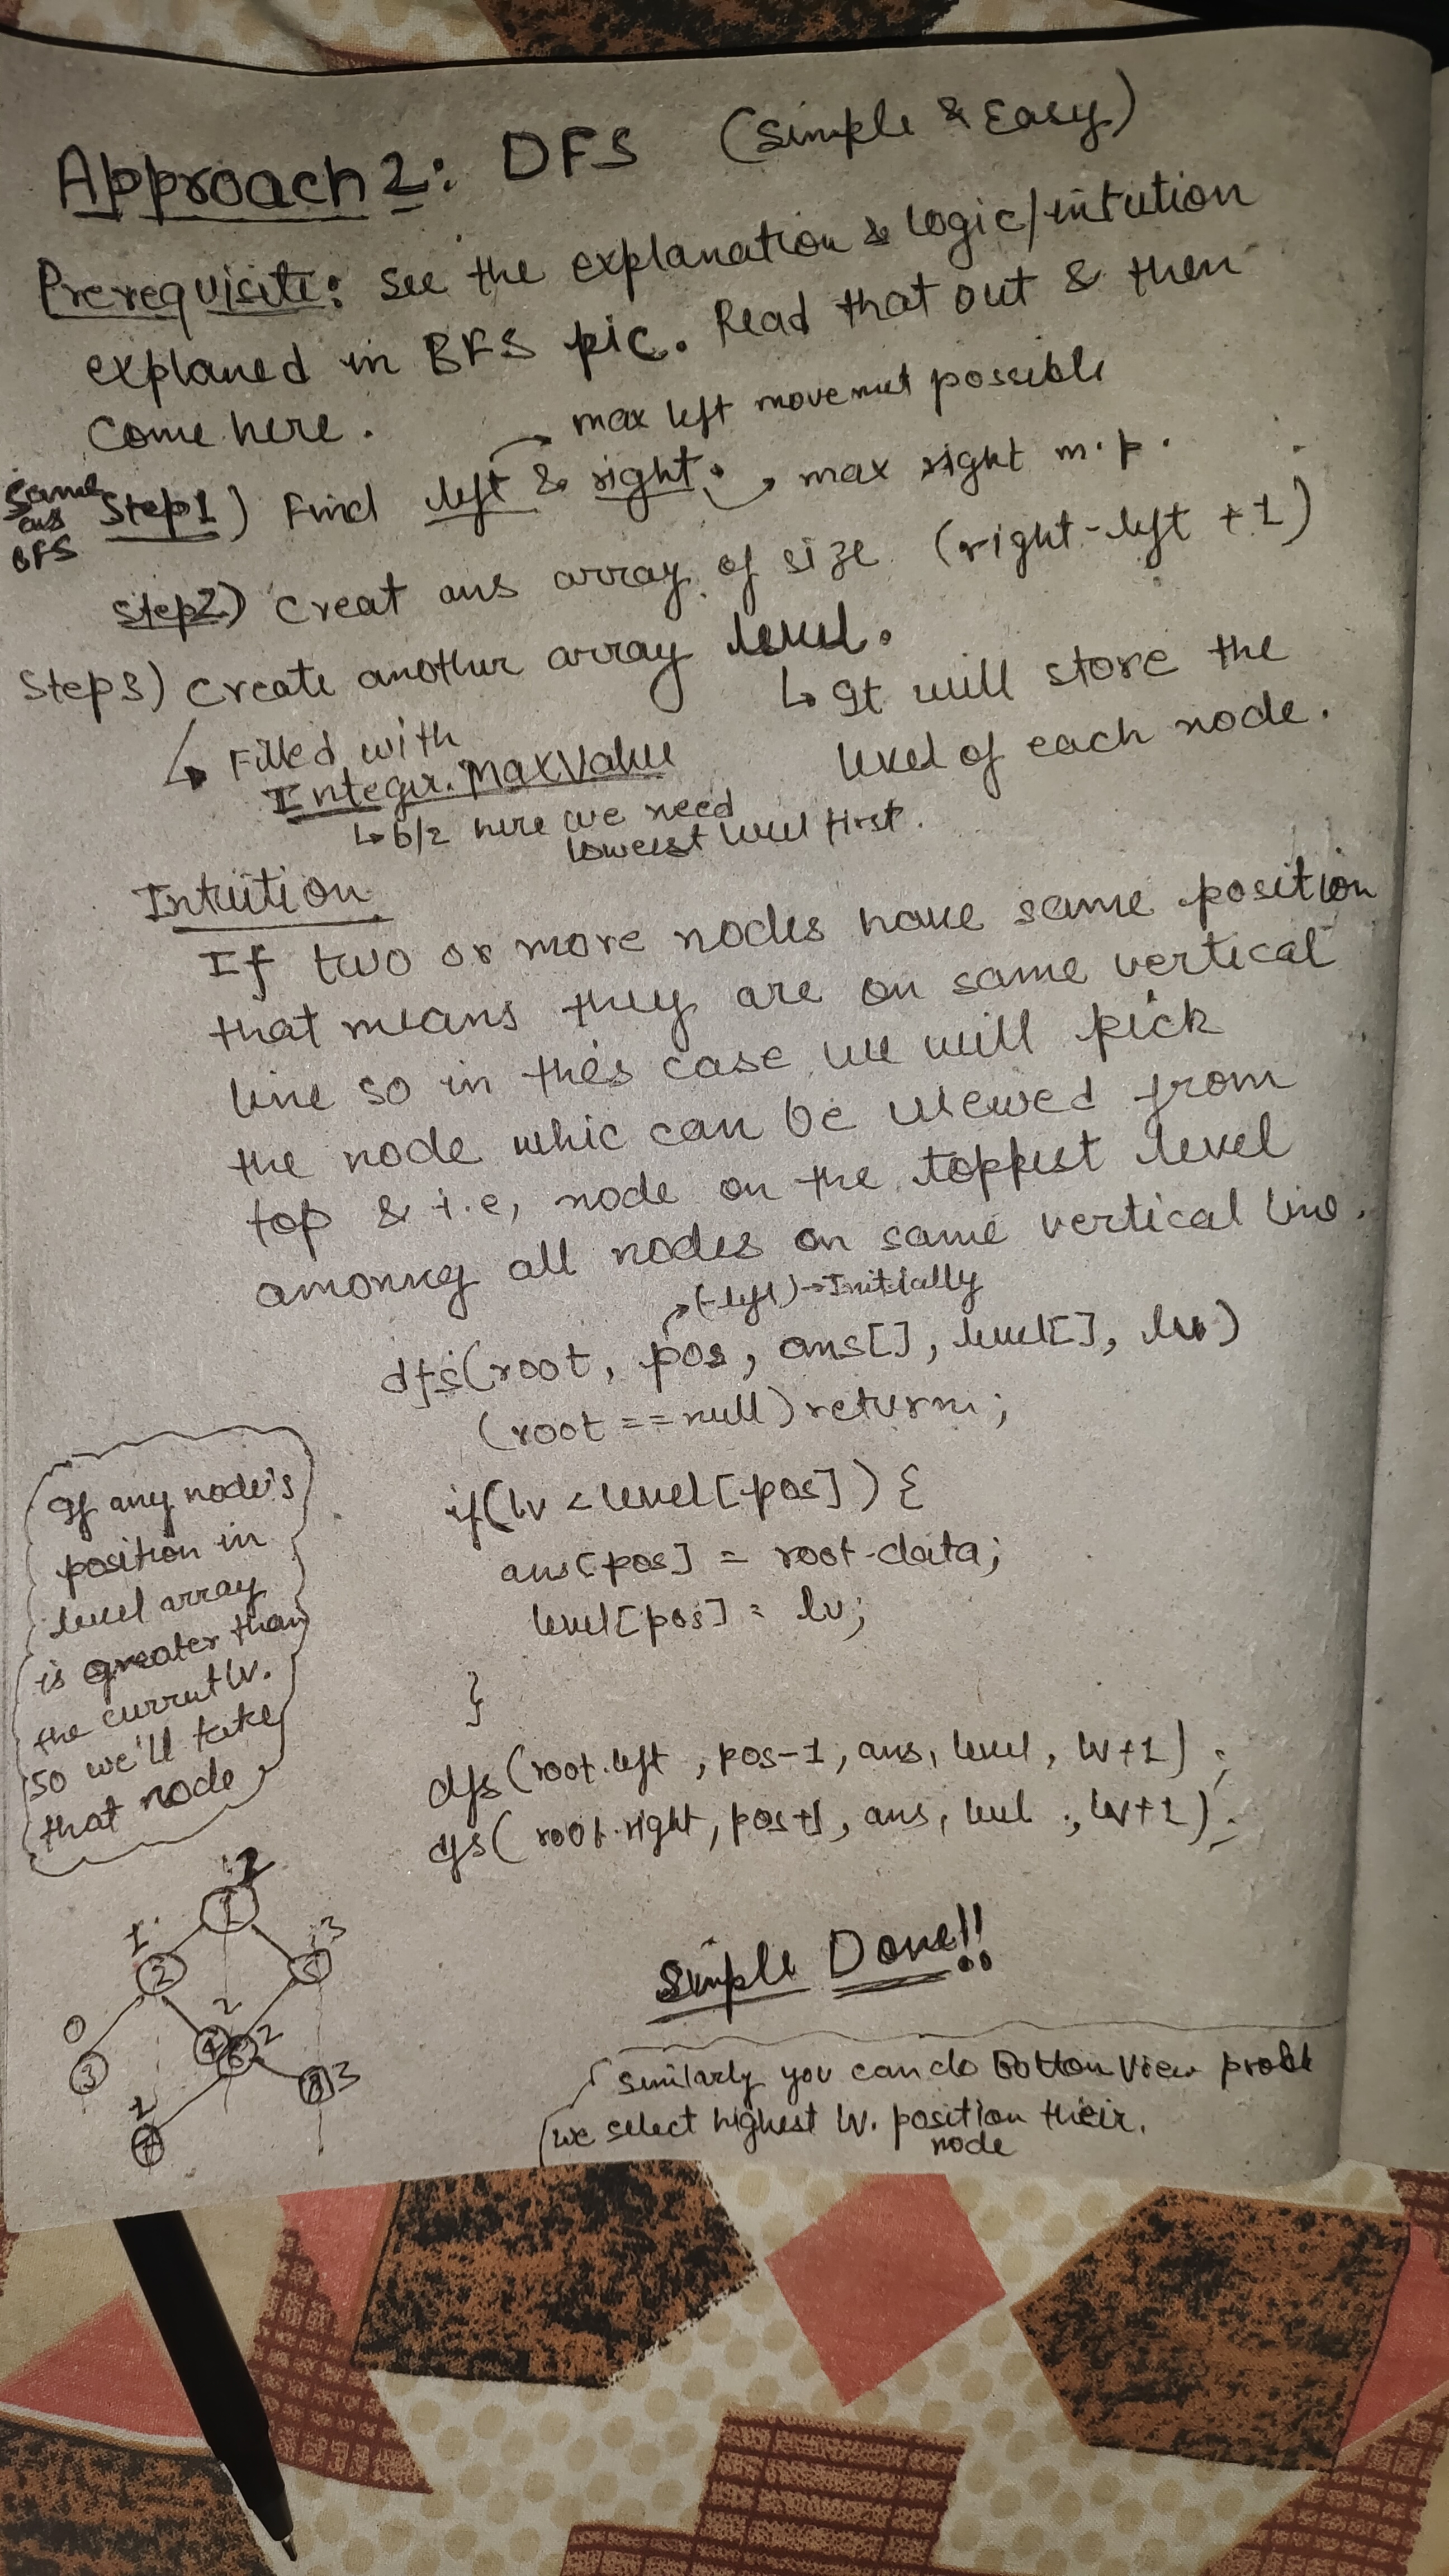 Approach 2: DFS (Simple & Easy)
Prerequisite: See the explanation & logic/intution
explaned in BFS pic. Read that out & then
come here.
max left movement possible
Same as BFS Step1) Find left & right. max right m.p.
Step2) Creat ans array of size (right-left +1)
Step3) Create another array level.
↳ It will store the
level of each node.
↳ Filled with
Integer.MaxValue
↳ b/z here we need
lowest level first.
Intuition
If two or more nodes have same position
that means they are on same vertical
line so in this case we will pick
the node whic can be viewed from
top & i.e, node on the toppest level
amonng all nodes on same vertical line.
(-left)→Initially
dfs(root, pos, ans[], level[], lv)
(root == null) return;
if(lv < level[pos]) {
ans[pos] = root.data;
level[pos] = lv;
}
dfs(root.left, pos-1, ans, level, lv+1);
dfs(root.right, pos+1, ans, level, lv+1);
If any node's
position in
level array
is greater than
the currut lv.
so we'll take
that node
2
1
1 3
2
0 2
4 6 2
3
8 3
1
7
Simple Done!!
Similarly you can do Bottom View
we select highest lv. position their.
node